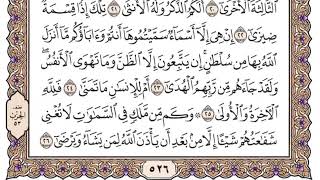 الثَّالِثَةَ الْأُخْرَىٰ ۝٢٠ أَلَكُمُ الذَّكَرُ وَلَهُ الْأُنثَىٰ ۝٢١ تِلْكَ إِذًا قِسْمَةٌ
ضِيزَىٰ ۝٢٢ إِنْ هِيَ إِلَّا أَسْمَاءٌ سَمَّيْتُمُوهَا أَنتُمْ وَآبَاؤُكُم مَّا أَنزَلَ
اللَّهُ بِهَا مِن سُلْطَانٍ ۚ إِن يَتَّبِعُونَ إِلَّا الظَّنَّ وَمَا تَهْوَى الْأَنفُسُ ۖ
وَلَقَدْ جَاءَهُم مِّن رَّبِّهِمُ الْهُدَىٰ ۝٢٣ أَمْ لِلْإِنسَانِ مَا تَمَنَّىٰ ۝٢٤ فَلِلَّهِ
الْآخِرَةُ وَالْأُولَىٰ ۝٢٥ وَكَم مِّن مَّلَكٍ فِي السَّمَاوَاتِ لَا تُغْنِي
شَفَاعَتُهُمْ شَيْئًا إِلَّا مِن بَعْدِ أَن يَأْذَنَ اللَّهُ لِمَن يَشَاءُ وَيَرْضَىٰ ۝٢٦
الحزب
٥٣
٥٢٦